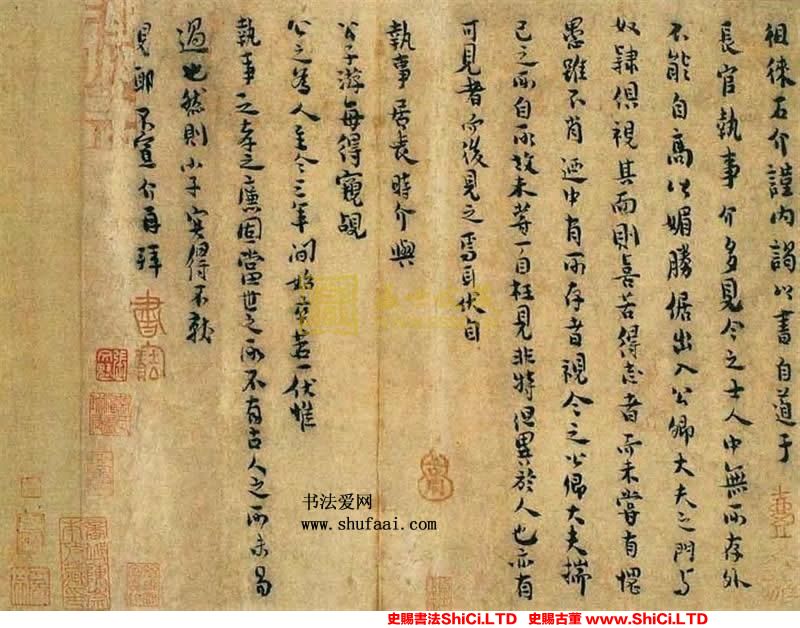 徂徠石介謹內謁以書自道于
長官執事介多見今之士人中無所存外
不能自高以媚勝倨出入公卿大夫之門與
奴隸俱視其面則喜若得志者而未嘗有愧
愚雖不肖遁中有所存者視今之公卿大夫揣
己之所自所故未嘗一自枉見非特但異於人也亦有
可見者而後見之焉耳伏自
執事居喪時介與
公子游每得窺覘
公之為人至今三年間始卒若一伏惟
執事之孝之廉固當世之所不有古人之所未易
過也然則小子實得不就
見耶不宣介再拜
書法爱网
www.shufaai.com
史賜書法ShiCi.LTD 史賜古董 www.ShiCi.LTD